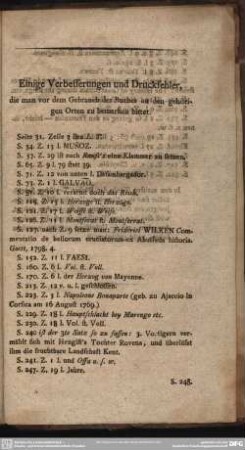 Einige Verbesserungen und Druckfehler,
die man vor dem Gebrauch des Buches an den gehöri-
gen Orten zu bemerken bittet.
Seite 31. Zeile 3
S. 32. Z. 13 l. MUÑOZ.
S. 37. Z. 29 ist nach eine Klammer zu setzen.
S. 69. Z. 9 l. 79 statt 39.
S. 71. Z. 12 von unten l. Dissenhergasser.
S. 71. Z. 31 l. GALVAO.
S. 91. Z. 10 l. doch das Buch.
S. 124. Z. 15 l. Herzoge st. Herzog.
S. 121. Z. 17 l.
S. 126. Z. 11 l. Montferrat st.
S. 127. nach Z. 9 setze man: Friderici WILKEN Com-
mentatio de bellorum cruciatorum ex Abulfeda historia.
Goett. 1798. 4.
S. 152. Z. 11 l. FAESI.
S. 160. Z. 6 l. Vol. st. Voll.
S. 170. Z. 6 l. der Herzog von Mayenne.
S. 213. Z. 12 v. u. l. geschlossen.
S. 223. Z. 3 l. Napoleone Bonaparte (geb. zu Ajaccio in
Corsica am 16 August 1769.)
S. 229. Z. 18 l. Hauptschlacht bey Marengo etc.
S. 230. Z. 18 l. Vol. st. Voll.
S. 240. ist der 3te Satz so zu fassen: 3. Vortigern ver-
mählt sich mit Hengist's Tochter Rovena, und überläst
ihm die fruchtbare Landschaft Kent.
S. 241. Z. 1 l. und Offa u. s. w.
S. 247. Z. 19 l. Jahre.
S. 248.